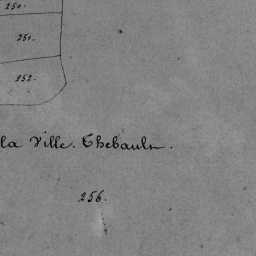 250.
251.
252.
la Ville. Thebault.
256.